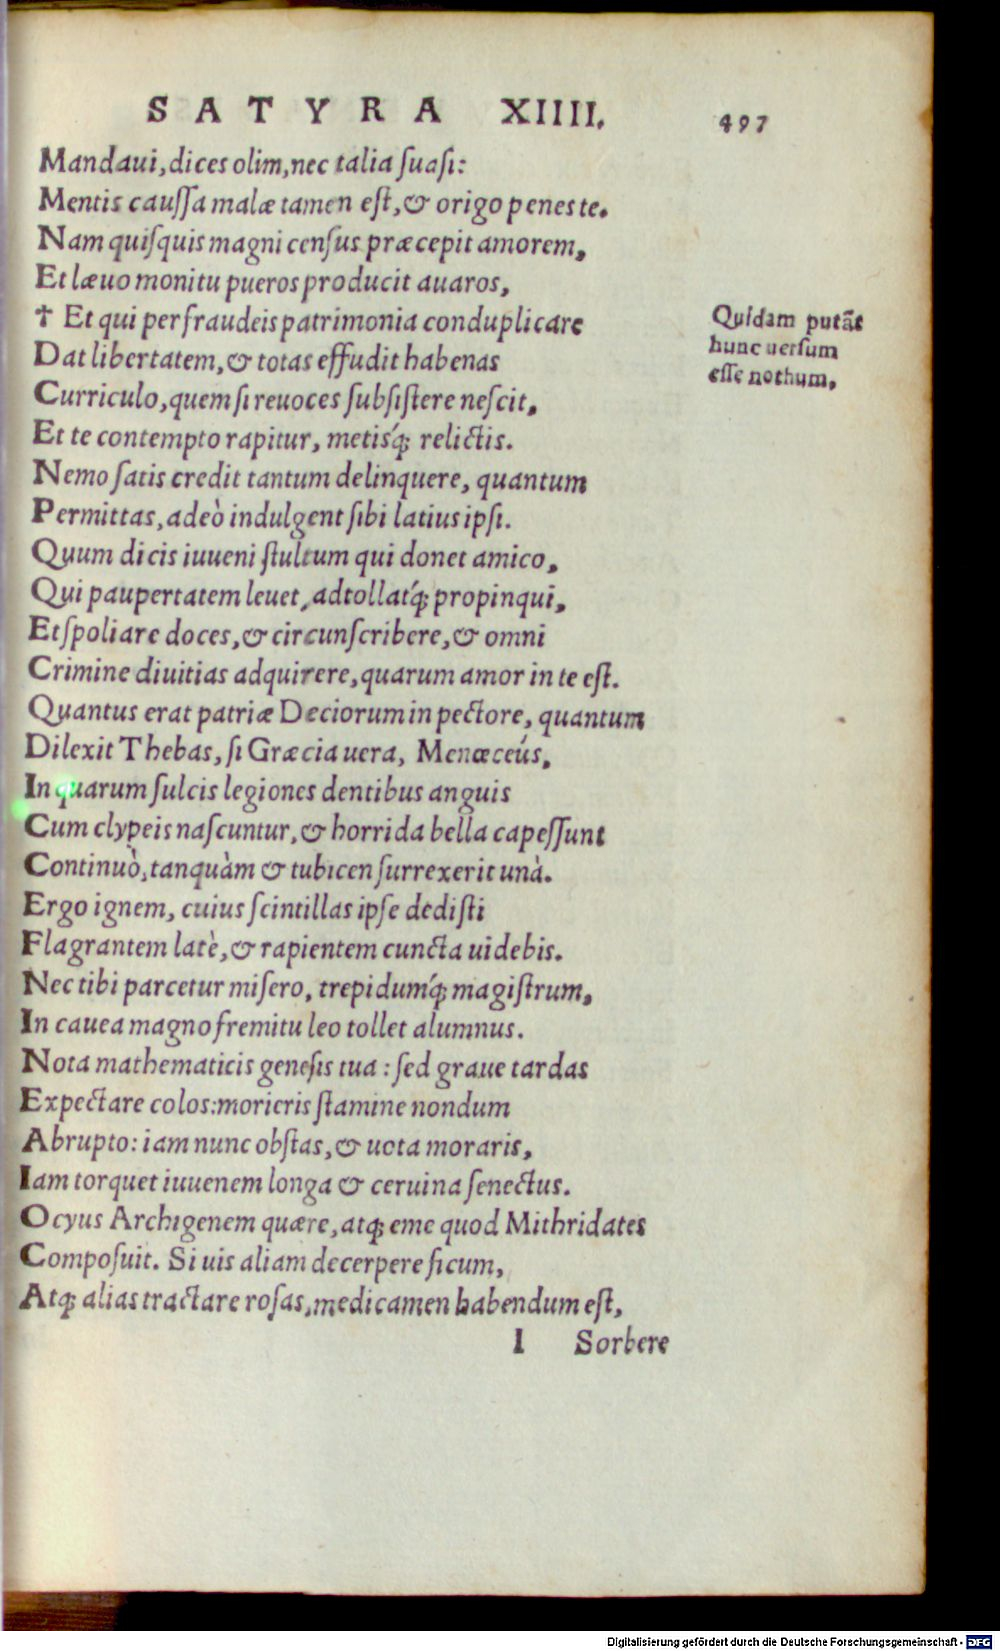 SATYRA XIIII. 497
Mandaui, dices olim, nec talia ſuaſi:
Mentis cauſſa malæ tamen eſt, & origo penes te.
Nam quiſquis magni cenſus præcepit amorem,
Et læuo monitu pueros producit auaros,
† Et qui per fraudeis patrimonia conduplicare
Quidam putãt
hunc uerſum
eſſe nothum.
Dat libertatem, & totas effudit habenas
Curriculo, quem ſi reuoces ſubſiſtere neſcit,
Et te contempto rapitur, metisq́; relictis.
Nemo ſatis credit tantum delinquere, quantum
Permittas, adeò indulgent ſibi latius ipſi.
Quum dicis iuueni ſtultum qui donet amico,
Qui paupertatem leuet, adtollatq́; propinqui,
Et ſpoliare doces, & circunſcribere, & omni
Crimine diuitias adquirere, quarum amor in te eſt.
Quantus erat patriæ Deciorum in pectore, quantum
Dilexit Thebas, ſi Græcia uera, Menœceús,
In quarum ſulcis legiones dentibus anguis
Cum clypeis naſcuntur, & horrida bella capeſſunt
Continuò, tanquàm & tubicen ſurrexerit unà.
Ergo ignem, cuius ſcintillas ipſe dediſti
Flagrantem latè, & rapientem cuncta uidebis.
Nec tibi parcetur miſero, trepidumq́; magiſtrum,
In cauea magno fremitu leo tollet alumnus.
Nota mathematicis geneſis tua: ſed graue tardas
Expectare colos: morieris ſtamine nondum
Abrupto: iam nunc obſtas, & uota moraris,
Iam torquet iuuenem longa & ceruina ſenectus.
Ocyus Archigenem quære, atq; eme quod Mithridates
Compoſuit. Si uis aliam decerpere ficum,
Atq; alias tractare roſas, medicamen habendum eſt,
I Sorbere
Digitalisierung gefördert durch die Deutsche Forschungsgemeinschaft - DFG